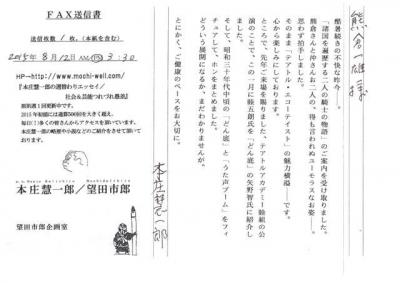 FAX送信書
送信枚数 1 枚。(本紙を含む)
2015年 8月12日AM PM 3:30
HP→http://www.mochi-well.com/
『本庄慧一郎の週替わりエッセイ/
社会&芸能つれづれ愚談』
原則週1回更新中です。
2015年初頭には連算500回を大きく超え、
毎日(!)多くの皆さんからアクセスを頂いています。
本庄慧一郎の略歴や小説などのご紹介をさせて頂いて
おります。
本庄慧一郎/望田市郎
望田市郎企画室
熊倉一雄様
酷暑続きの不快な昨今――。
「諸国を遍歴する二人の騎士の物語」のご案内を受け取りました。
熊倉さんと沖さんお二人の、得も言われぬユーモラスなお姿――。
思わず拍手しました。
そのまま「テアトル・エコーテイスト」の魅力横溢――です。
心から楽しみにしております。
ところで、先年ご来場を賜りました、テアトルアカデミー睦組の公
演のことで、この二月に睦五朗氏を「どん底」の矢野智氏に紹介し
ました。
そして、昭和三十年代中頃の「どん底」と「うた声ブーム」をフィ
チュアして、ホンをまとめました。
どういう展開になるか、まだわかりませんが。
とにかく、ご健康のペースをお大切に。
本庄慧一郎